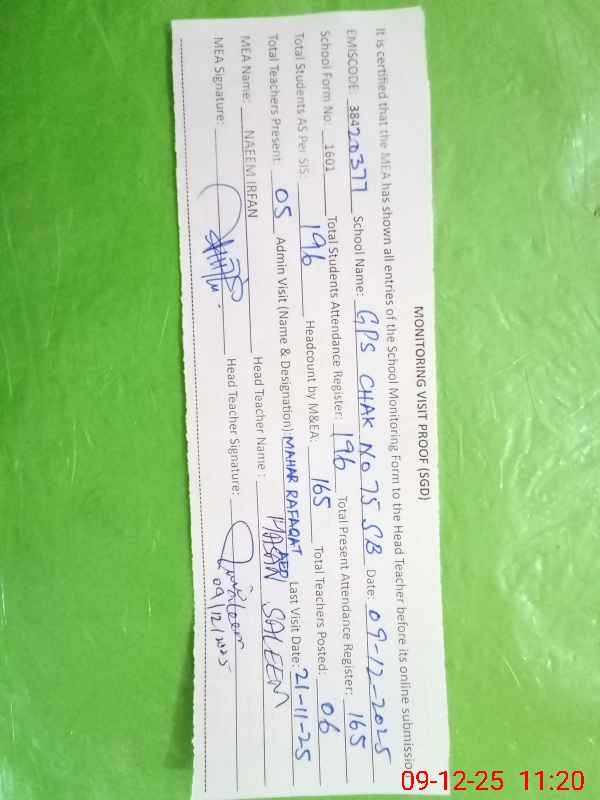 MONITORING VISIT PROOF (SGD)
It is certified that the MEA has shown all entries of the School Monitoring Form to the Head Teacher before its online submission
EMISCODE: 38420377 School Name: GPS CHAK NO 75 SB Date: 09-12-2025
School Form No: 1601 Total Students Attendance Register: 196 Total Present Attendance Register: 165
Total Students AS Per SIS: 196 Headcount by M&EA: 165 Total Teachers Posted: 06
Total Teachers Present: 05 Admin Visit (Name & Designation): MAHAR RAFAQAT AEO Last Visit Date: 21-11-25
MEA Name: NAEEM IRFAN Head Teacher Name : HASAN SALEEM
MEA Signature: Head Teacher Signature:
09/12/2025
09-12-25 11:20